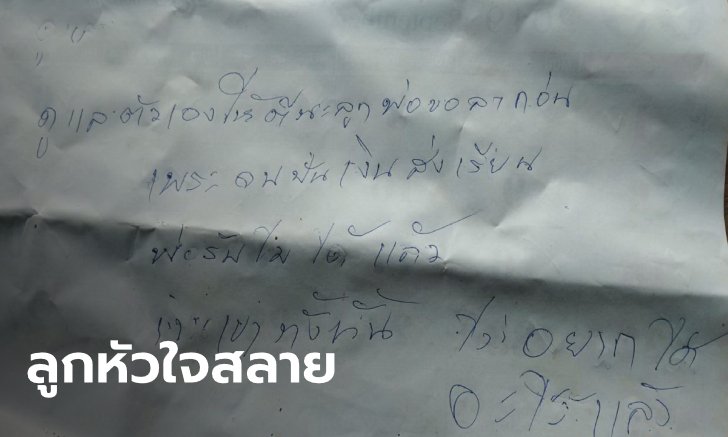 ดูแลตัวเองให้ดีนะลูกพ่อขอลาก่อน
เพราะจนเงินส่งเรียน
พ่อรับไม่ได้แล้ว
ทั้งนั้น ไม่อยากได้
อะไรแล้ว
ลูกหัวใจสลาย